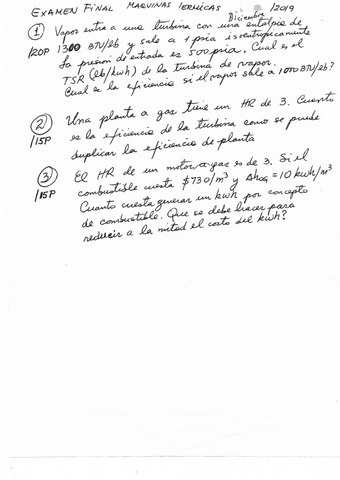 EXAMEN FINAL MAQUINAS TERMICAS Diciembre /2019
① Vapor entra a una turbina con una entalpia de
/20P 1300 BTU/lb y sale a 1 psia isentropicamente
La presion de entrada es 500 psia. Cual es el
TSR (lb/kwh) de la turbina de vapor.
Cual es la eficiencia si el vapor sale a 1000 BTU/lb?
② Una planta a gas tiene un HR de 3. Cuanto
/15P es la eficiencia de la turbina como se puede
duplicar la eficiencia de planta
③ El HR de un motor a gas es de 3. Si el
/15P combustible cuesta $730/m³ y Δhog = 10 kwh/m³
Cuanto cuesta generar un kwh por concepto
de combustible. Que se debe hacer para
reducir a la mitad el costo del kwh?